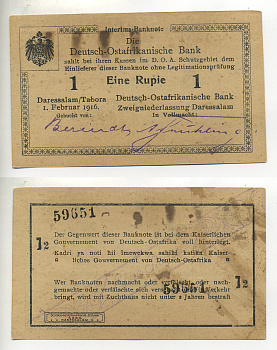 Interims-Banknote
Die
Deutsch-Ostafrikanische Bank
zahlt bei ihren Kassen im D. O. A. Schutzgebiet dem
Einlieferer dieser Banknote ohne Legitimationsprüfung
1 Eine Rupie 1
Daressalam/Tabora Deutsch-Ostafrikanische Bank
1. Februar 1916. Zweigniederlassung Daressalam
Gebucht von: In Vollmacht:
59651
Der Gegenwert dieser Banknote ist bei dem Kaiserlichen
Gouvernement von Deutsch-Ostafrika voll hinterlegt.
J2
Kadri ya noti hii imewekwa sahihi katika Kaiser-
liches Gouvernement von Deutsch-Ostafrika
Wer Banknoten nachmacht oder verfälscht oder nach-
gemachte oder verfälschte sich verschafft und in Verkehr
bringt, wird mit Zuchthaus nicht unter 2 Jahren bestraft
J2
59651